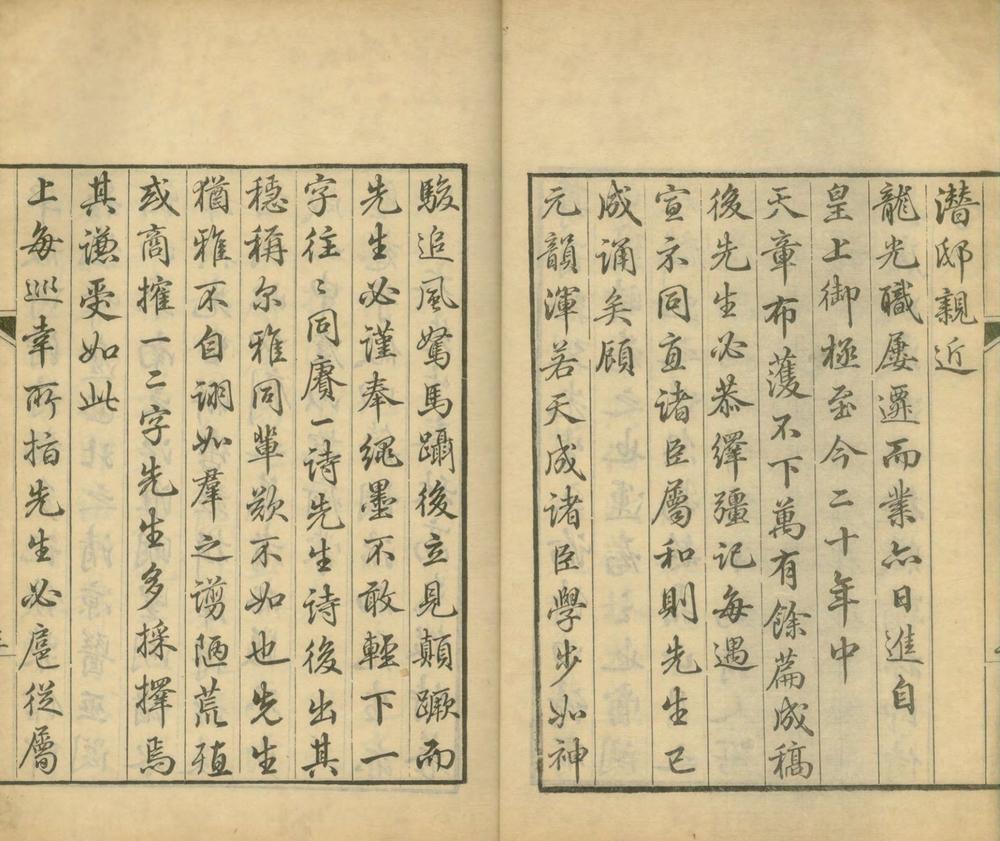 潛邸親近
龍光職屢遷而業亦日進自
皇上御極至今二十年中
天章布濩不下萬有餘篇成稿
後先生必恭繹彊記每遇
宣示同直諸臣屬和則先生已
成誦矣顧
元韻渾若天成諸臣學步如神
駿追風駑馬躡後立見顛蹶而
先生必謹奉繩墨不敢輕下一
字往〻同賡一詩先生詩後出其
穩稱尔雅同輩歎不如也先生
猶雅不自詡如羣之謭陋荒殖
或商搉一二字先生多採擇焉
其謙受如此
上每巡幸所指先生必扈從屬